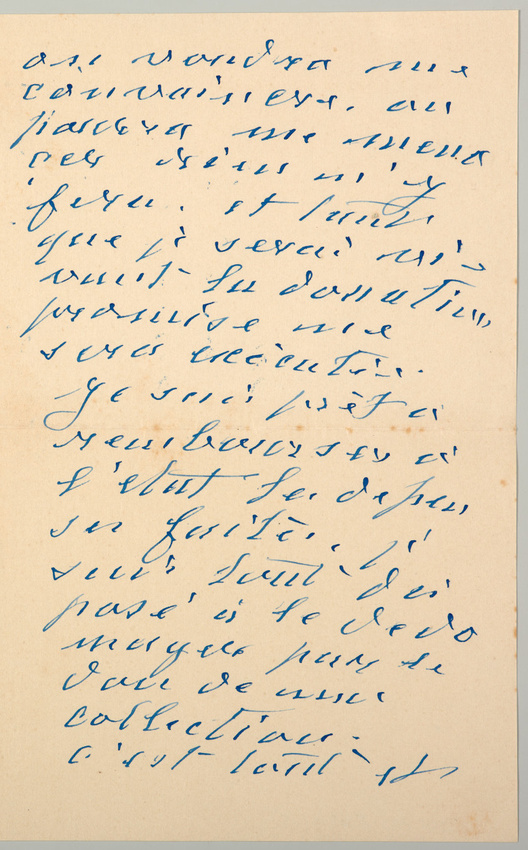 on voudra me
convaincre. on
pourra me mena
cer rien n'y
fera. et tant
que je serai vi-
vant la donation
promise ne
sera exécutée.
je suis prêt à
rembourser à
l'etat les depen
ses faites, je
suis tout dis
posé à le dedo
mager par le
don de ma
collection.
c'est tout et